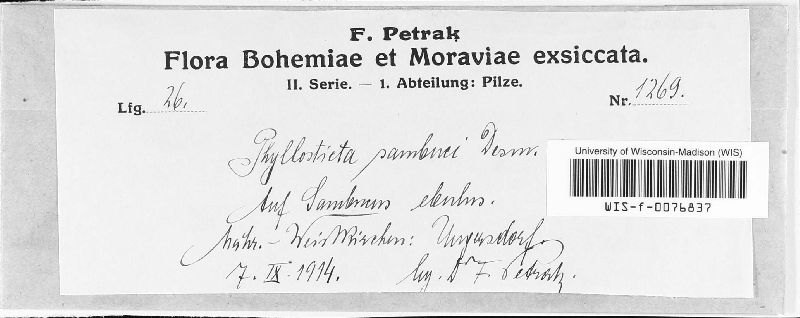 F. Petrak
Flora Bohemiae et Moraviae exsiccata.
II. Serie. — 1. Abteilung: Pilze.
Lfg. 26.
Nr. 1269.
Phyllosticta sambuci Desm.
University of Wisconsin-Madison (WIS)
WIS-f-0076837
Auf Sambucus ebulus.
Mähr.-Weisskirchen: Ungersdorf.
7. IX. 1914. lg. Dr F. Petrak.